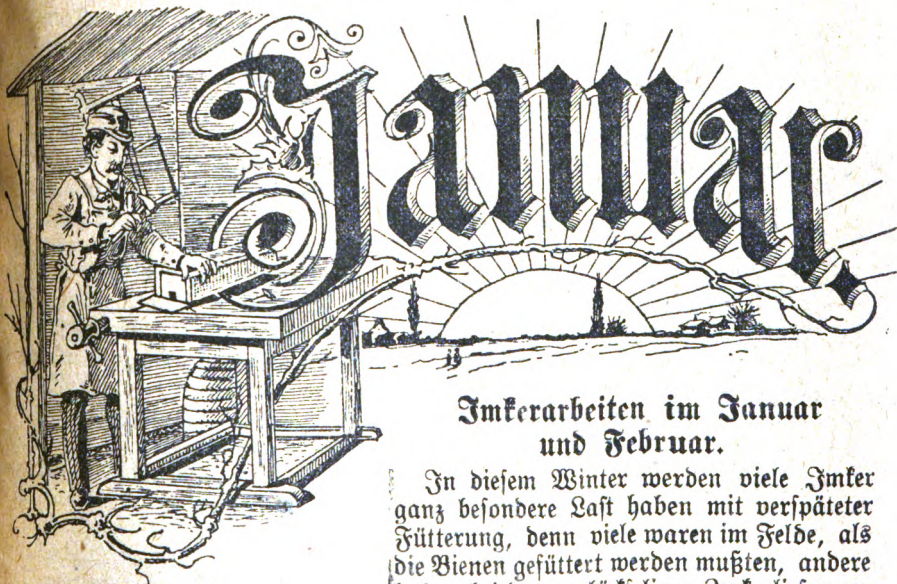 Januar
Imkerarbeiten im Januar
und Februar.
In diesem Winter werden viele Imker
ganz besondere Last haben mit verspäteter
Fütterung, denn viele waren im Felde, als
die Bienen gefüttert werden mußten, andere